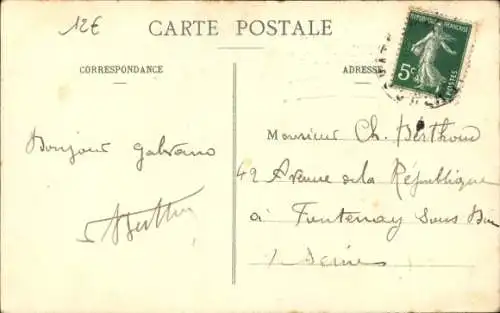 12€
CARTE POSTALE
CORRESPONDANCE
ADRESSE
RÉPUBLIQUE FRANÇAISE
5c
POSTES
Bonjour
Monsieur Ch. Berthoud
42 Avenue de la République
à Fontenay sous Bois
Seine